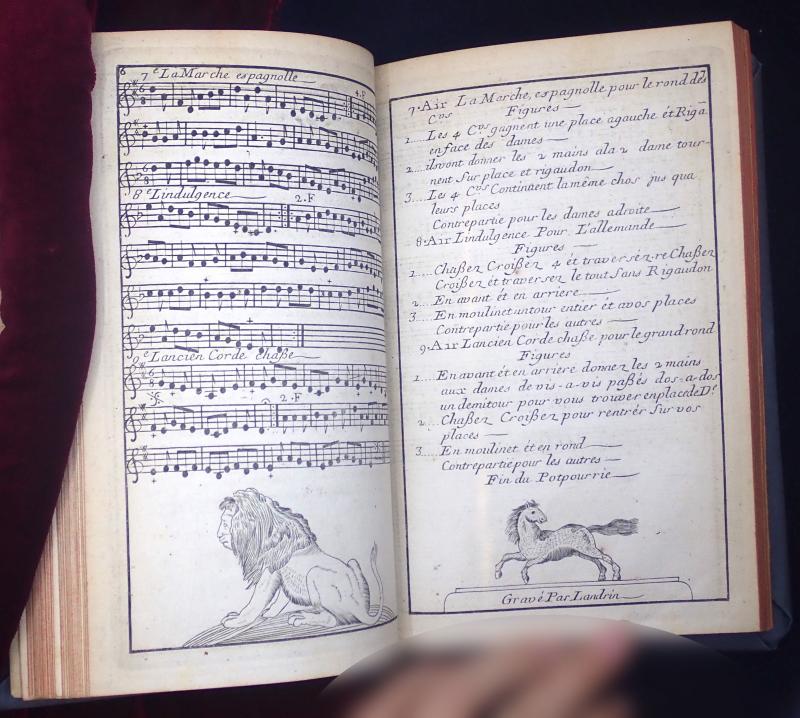 6
7.e La Marche espagnolle
4.F
8.e Lindulgence
2.F
9.e Lancien Corde chaße
2.F
7
7.Air La Marche, espagnolle pour le rond des
C.vs Figures
1.... Les 4 C.vs gagnent une place agauche ét Riga
enface des dames
2.... ilsvont donner les 2 mains ala 2 dame tour-
nent Sur place et rigaudon
3.... Les 4 C.vs Continüent la même chos jus qua
leurs places
Contrepartie pour les dames adroite
8.Air Lindulgence Pour L'allemande
Figures
1.... Chaßez Croißez 4 ét traversez.re Chaßez
Croißez ét traversez le tout Sans Rigaudon
2.... En avant ét en arriere
3.... En moulinet untour entier ét avos places
Contrepartie pour les autres
9.Air Lancien Corde chaße pour le grand rond
Figures
1.... En avant ét en arriere donnez les 2 mains
aux dames de vis-a-vis paßés dos-a-dos
un demitour pour vous trouver enplacedeD.e
2.... Chaßez Croißez pour rentrér Sur vos
places
3.... En moulinet ét en rond
Contrepartie pour les autres
Fin du Potpourrie
Gravé Par Landrin